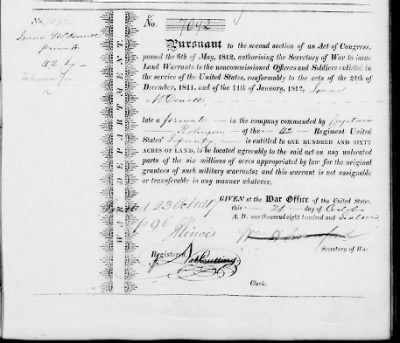 No. 7092
private
42
No. 7092
Pursuant to the second section of an Act of Congress,
passed the 6th of May, 1812, authorising the Secretary of War to issue
Land Warrants to the noncommissioned Officers and Soldiers enlisted in
the service of the United States, conformably to the acts of the 24th of
December, 1811, and of the 11th of January, 1812,
late a private in the company commanded by Captain
Robinson of the 42 Regiment United
States' Infantry is entitled to ONE HUNDRED AND SIXTY
ACRES OF LAND, to be located agreeably to the said act on any unlocated
parts of the six millions of acres appropriated by law for the original
grantees of such military warrants; and this warrant is not assignable
or transferable in any manner whatever.
GIVEN at the War Office of the United States,
this day of
A. D. one thousand eight hundred and
Illinois
Secretary of War.
Registered
Clerk.
WAR DEPARTMENT.